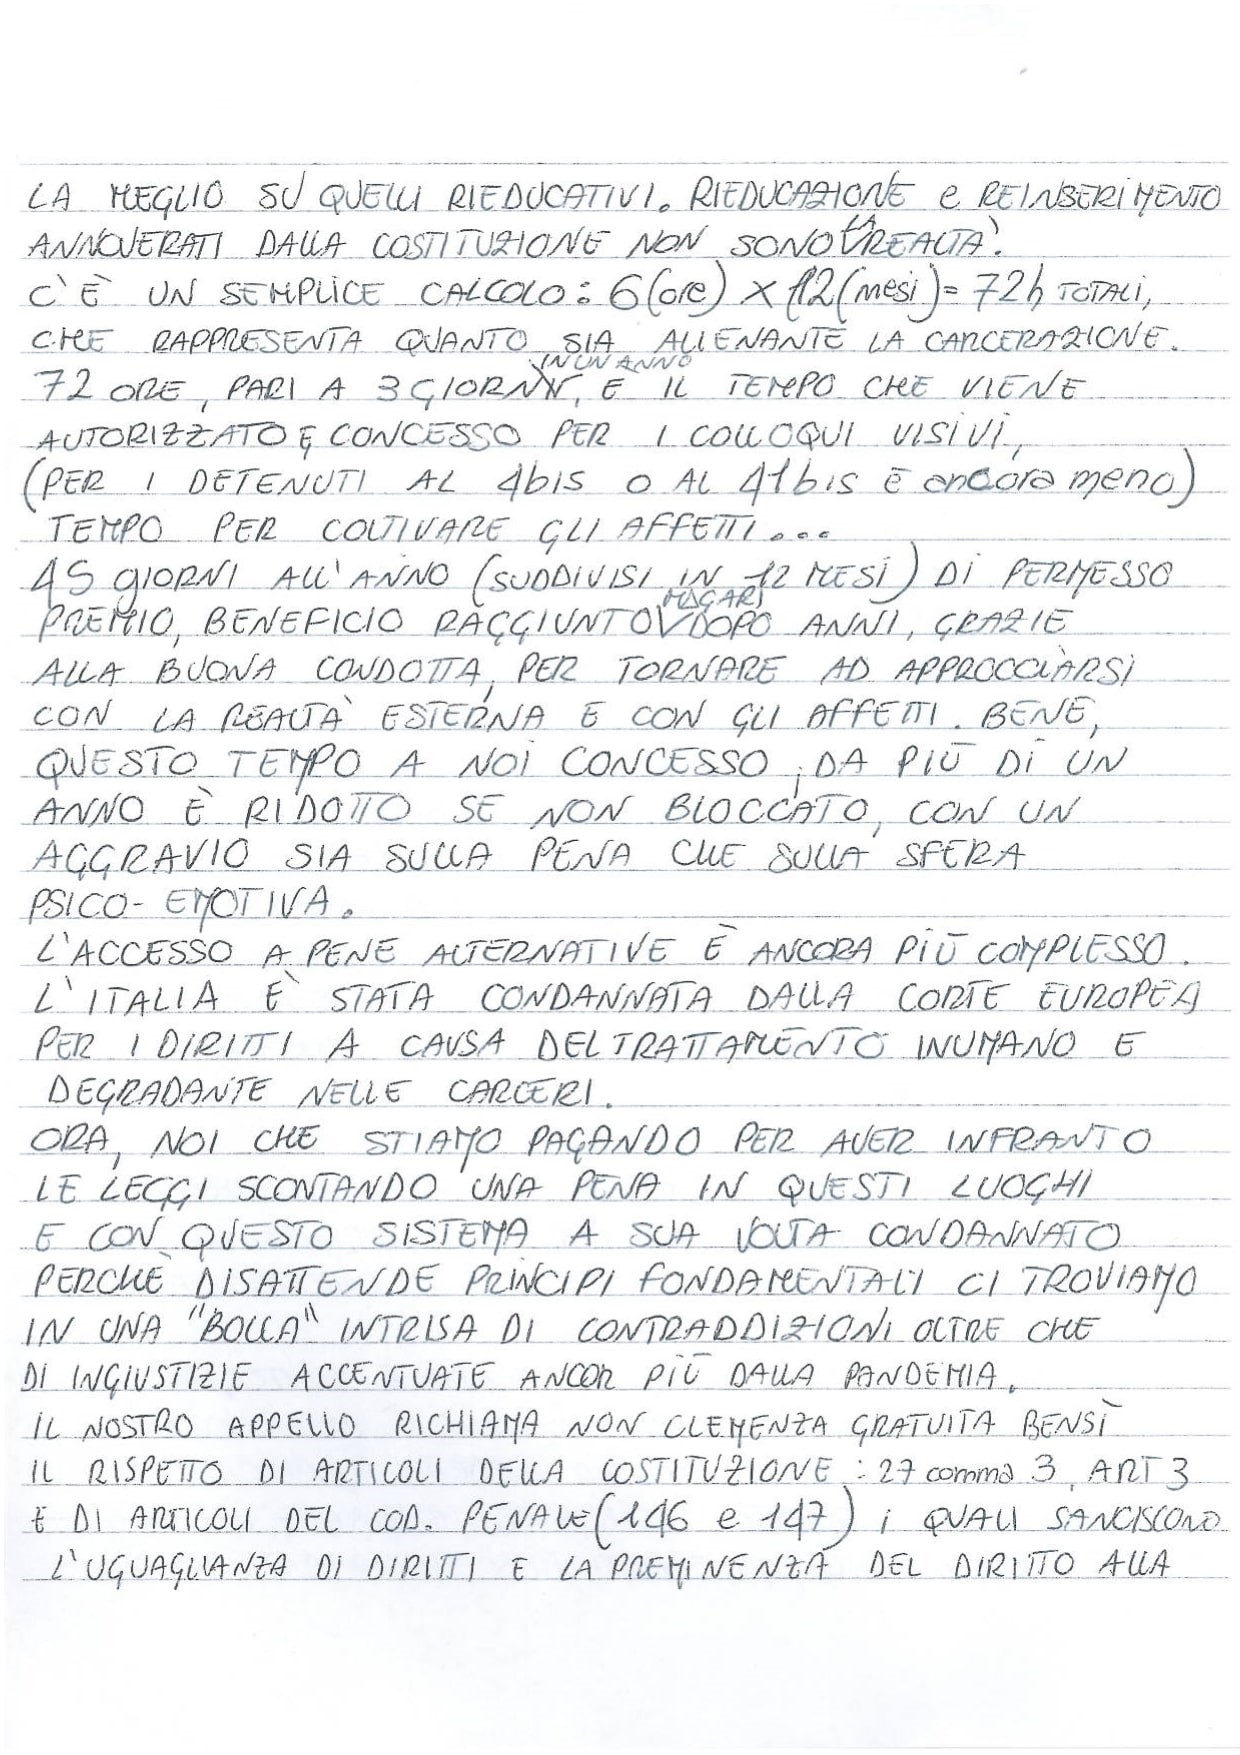 LA MEGLIO SU QUELLI RIEDUCATIVI. RIEDUCAZIONE e REINSERIMENTO
ANNOVERATI DALLA COSTITUZIONE NON SONO LA REALTA'.
C'È UN SEMPLICE CALCOLO: 6(ore) X 12(mesi)= 72h TOTALI,
CHE RAPPRESENTA QUANTO SIA ALIENANTE LA CARCERAZIONE.
72 ORE, PARI A 3 GIORNI IN UN ANNO, È IL TEMPO CHE VIENE
AUTORIZZATO E CONCESSO PER I COLLOQUI VISIVI,
(PER I DETENUTI AL 4bis O AL 41bis È ancora meno)
TEMPO PER COLTIVARE GLI AFFETTI...
45 GIORNI ALL'ANNO (SUDDIVISI IN 12 MESI) DI PERMESSO
PREMIO, BENEFICIO RAGGIUNTO MAGARI DOPO ANNI, GRAZIE
ALLA BUONA CONDOTTA, PER TORNARE AD APPROCCIARSI
CON LA REALTÀ ESTERNA E CON GLI AFFETTI. BENE,
QUESTO TEMPO A NOI CONCESSO, DA PIÙ DI UN
ANNO È RIDOTTO SE NON BLOCCATO, CON UN
AGGRAVIO SIA SULLA PENA CHE SULLA SFERA
PSICO-EMOTIVA.
L'ACCESSO A PENE ALTERNATIVE È ANCORA PIÙ COMPLESSO.
L'ITALIA È STATA CONDANNATA DALLA CORTE EUROPEA
PER I DIRITTI A CAUSA DEL TRATTAMENTO INUMANO E
DEGRADANTE NELLE CARCERI.
ORA, NOI CHE STIAMO PAGANDO PER AVER INFRANTO
LE LEGGI SCONTANDO UNA PENA IN QUESTI LUOGHI
E CON QUESTO SISTEMA A SUA VOLTA CONDANNATO
PERCHÈ DISATTENDE PRINCIPI FONDAMENTALI CI TROVIAMO
IN UNA "BOLLA" INTRISA DI CONTRADDIZIONI OLTRE CHE
DI INGIUSTIZIE ACCENTUATE ANCOR PIÙ DALLA PANDEMIA.
IL NOSTRO APPELLO RICHIAMA NON CLEMENZA GRATUITA BENSÌ
IL RISPETTO DI ARTICOLI DELLA COSTITUZIONE: 27 comma 3, ART 3
E DI ARTICOLI DEL COD. PENALE (146 e 147) i QUALI SANCISCONO
L'UGUAGLIANZA DI DIRITTI E LA PREMINENZA DEL DIRITTO ALLA